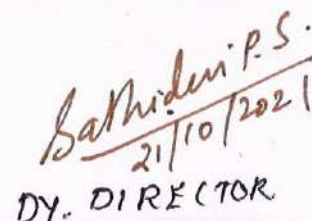 Sathidevi P.S.
21/10/2021
DY. DIRECTOR